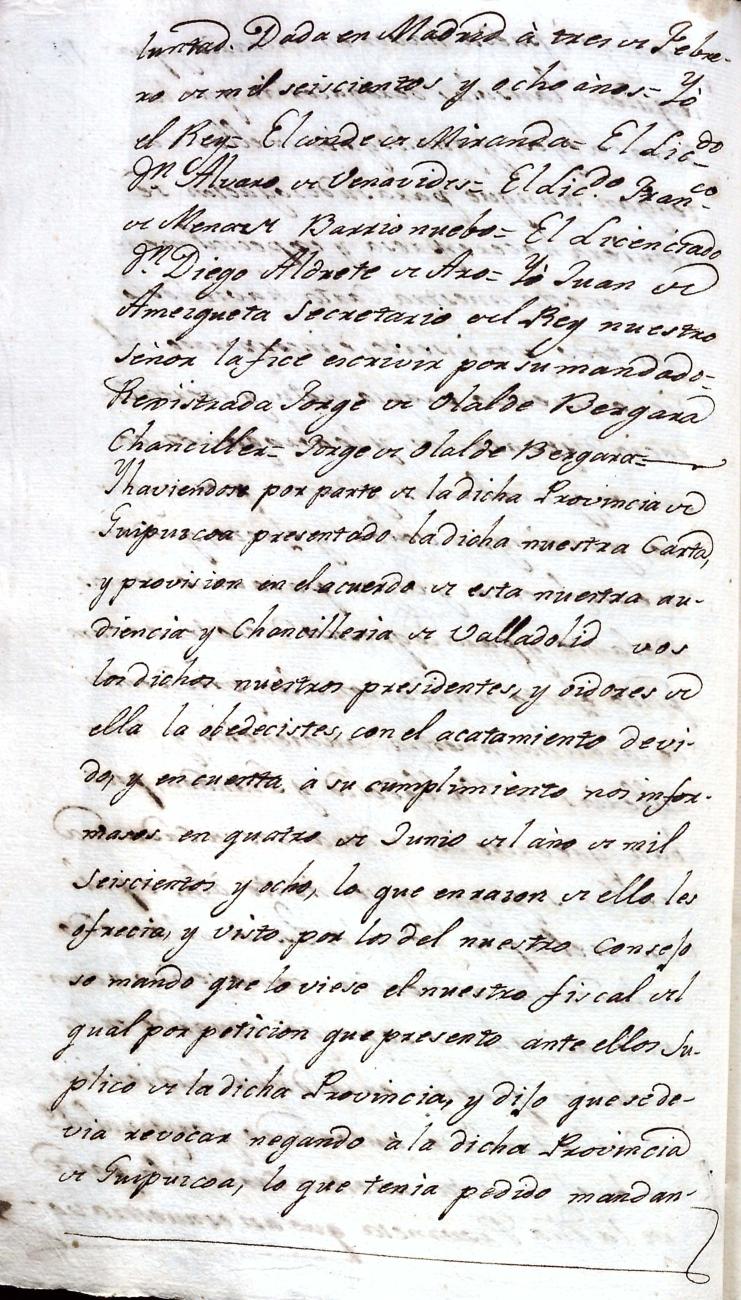 luntad. Dada en Madrid à tres de Febre-
ro de mil seiscientos y ocho años= Yò
el Rey= El conde de Miranda= El Lic.do
Dn Alvaro de Venavides= El Lic.do Fran.co
de Mena de Barrionuebo= El Licenciado
Dn. Diego Aldrete de Aro= Yò Juan de
Amezqueta secretario del Rey nuestro
señor la fice escrivir por su mandado=
Revistrada Jorge de Olalde Bergara
Chanciller= Jorge de Olalde Bergara=
Y haviendose por parte de la dicha Provincia de
Guipuzcoa presentado la dicha nuestra Carta,
y provision en el acuerdo de esta nuestra au-
diencia y Chancilleria de Valladolid vos
los dichos nuestros presidentes, y oidores de
ella la obedecistes, con el acatamiento devi-
do, y en cuenta à su cumplimiento nos infor-
masos en quatro de Junio del año de mil
seiscientos y ocho, lo que en razon de ello les
ofrecia, y visto por los del nuestro Consejo
se mando que lo viese el nuestro fiscal el
qual por peticion que presento ante ellos su-
plico de la dicha Provincia, y dijo que se de-
via revocar negando à la dicha Provincia
de Guipuzcoa, lo que tenia pedido mandan-